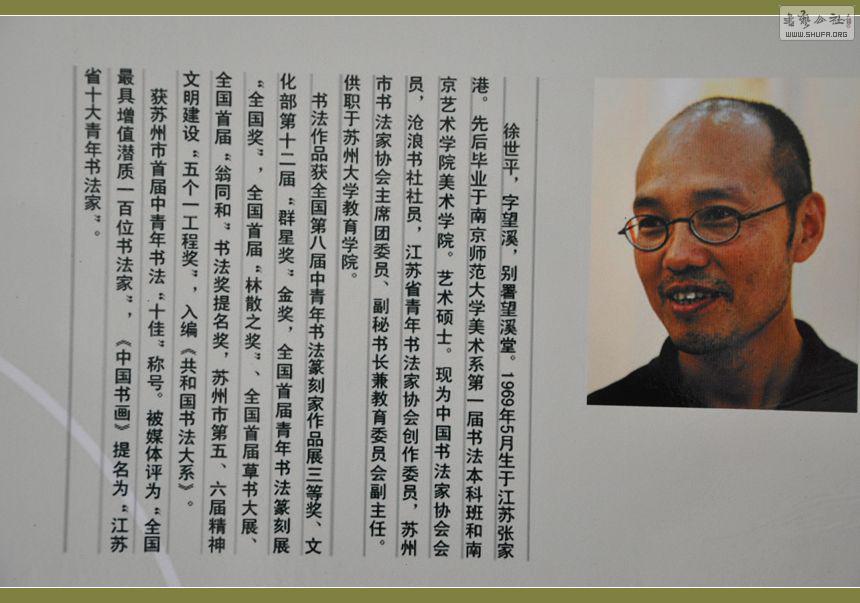 徐世平，字望溪，别署望溪堂。1969年5月生于江苏张家
港。先后毕业于南京师范大学美术系第一届书法本科班和南
京艺术学院美术学院。艺术硕士。现为中国书法家协会会
员，沧浪书社社员，江苏省青年书法家协会创作委员，苏州
市书法家协会主席团委员、副秘书长兼教育委员会副主任。
供职于苏州大学教育学院。
书法作品获全国第八届中青年书法篆刻家作品展三等奖、文
化部第十二届“群星奖”金奖，全国首届青年书法篆刻展
“全国奖”，全国首届“林散之奖”、全国首届草书大展、
全国首届“翁同和”书法奖提名奖，苏州市第五、六届精神
文明建设“五个一工程奖”，入编《共和国书法大系》。
获苏州市首届中青年书法“十佳”称号。被媒体评为“全国
最具增值潜质一百位书法家”，《中国书画》提名为“江苏
省十大青年书法家”。
WWW.SHUFA.ORG